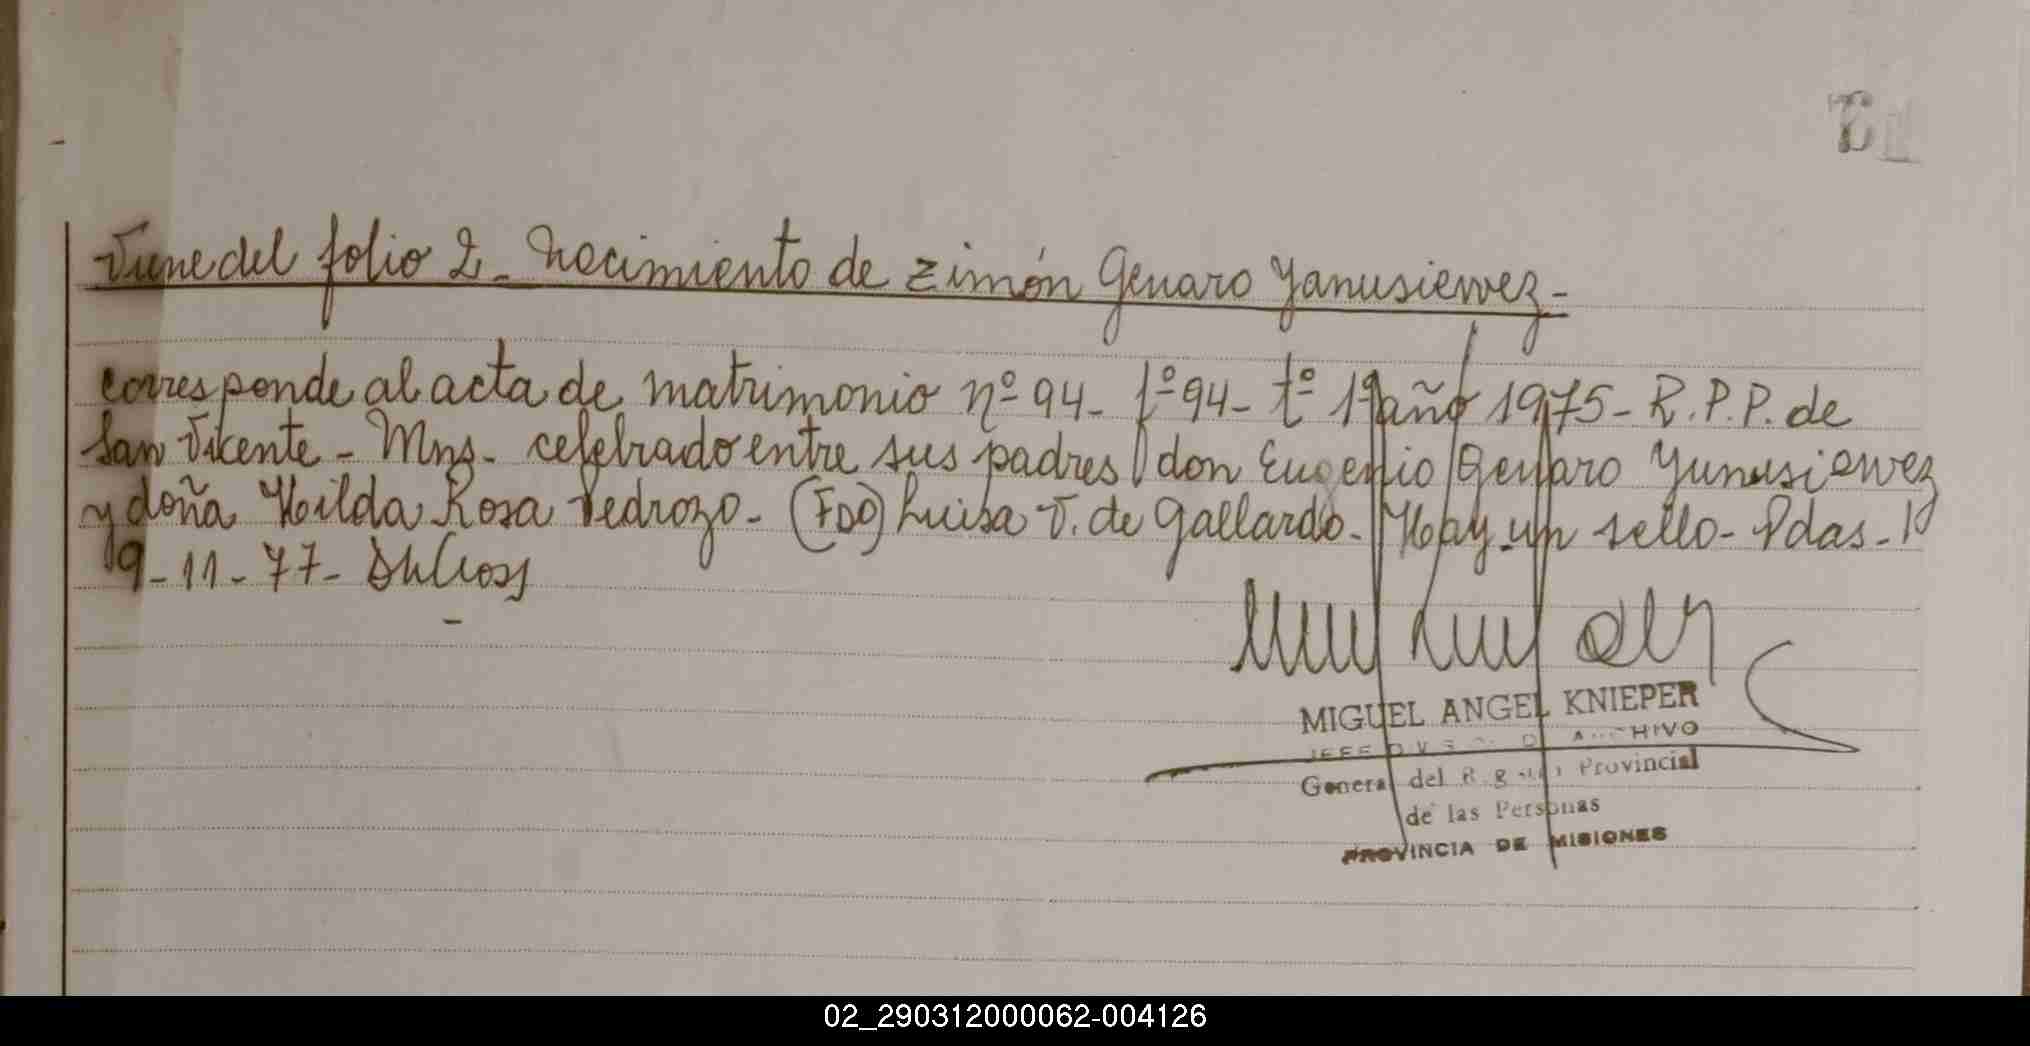 Viene del folio 2- Nacimiento de Zimón Genaro Yanusiewez-
corresponde al acta de matrimonio nº 94- fº 94- tº 1º año 1975- R.P.P. de
San Vicente- Mns- celebrado entre sus padres don Eugenio Genaro Yunusiewez
y doña Hilda Rosa Pedrozo- (FDO) Luisa V. de Gallardo- Hay un sello- Pdas-
9-11-77-
MIGUEL ANGEL KNIEPER
ARCHIVO
General del Registro Provincial
de las Personas
PROVINCIA DE MISIONES
02_290312000062-004126